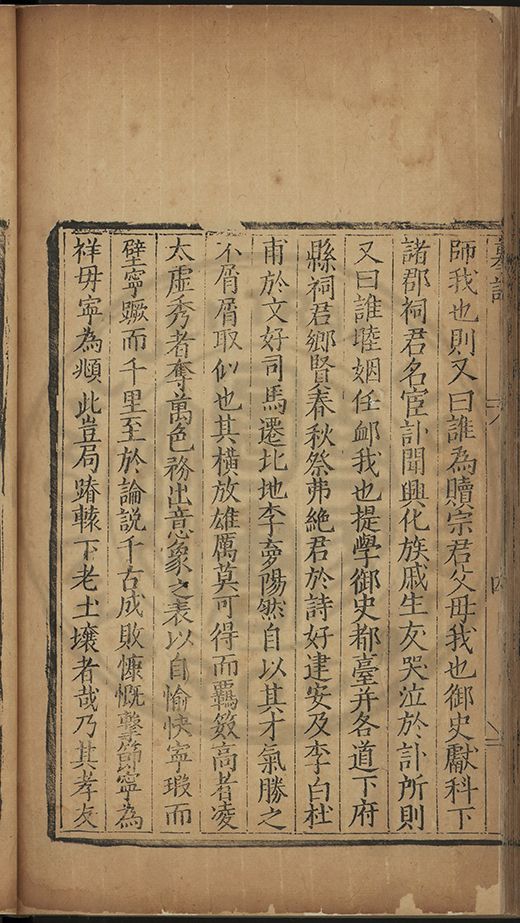 墓誌
八
四
師我也則又曰誰為贖宗君父毋我也御史獻科下
諸郡祠君名宦訃聞興化族戚生友哭泣於訃所則
又曰誰睦姻任䘏我也提學御史都臺并各道下府
縣祠君鄉賢春秋祭弗絶君於詩好建安及李白杜
甫於文好司馬遷北地李夢陽然自以其才氣勝之
不屑屑取似也其橫放雄厲莫可得而羈簽高者凌
太虛秀者奪萬色務出意象之表以自愉快寧瑕而
璧寧蹶而千里至於論說千古成敗慷慨擊節寧為
祥毋寧為頫此豈局蹐轅下老土壤者哉乃其孝友